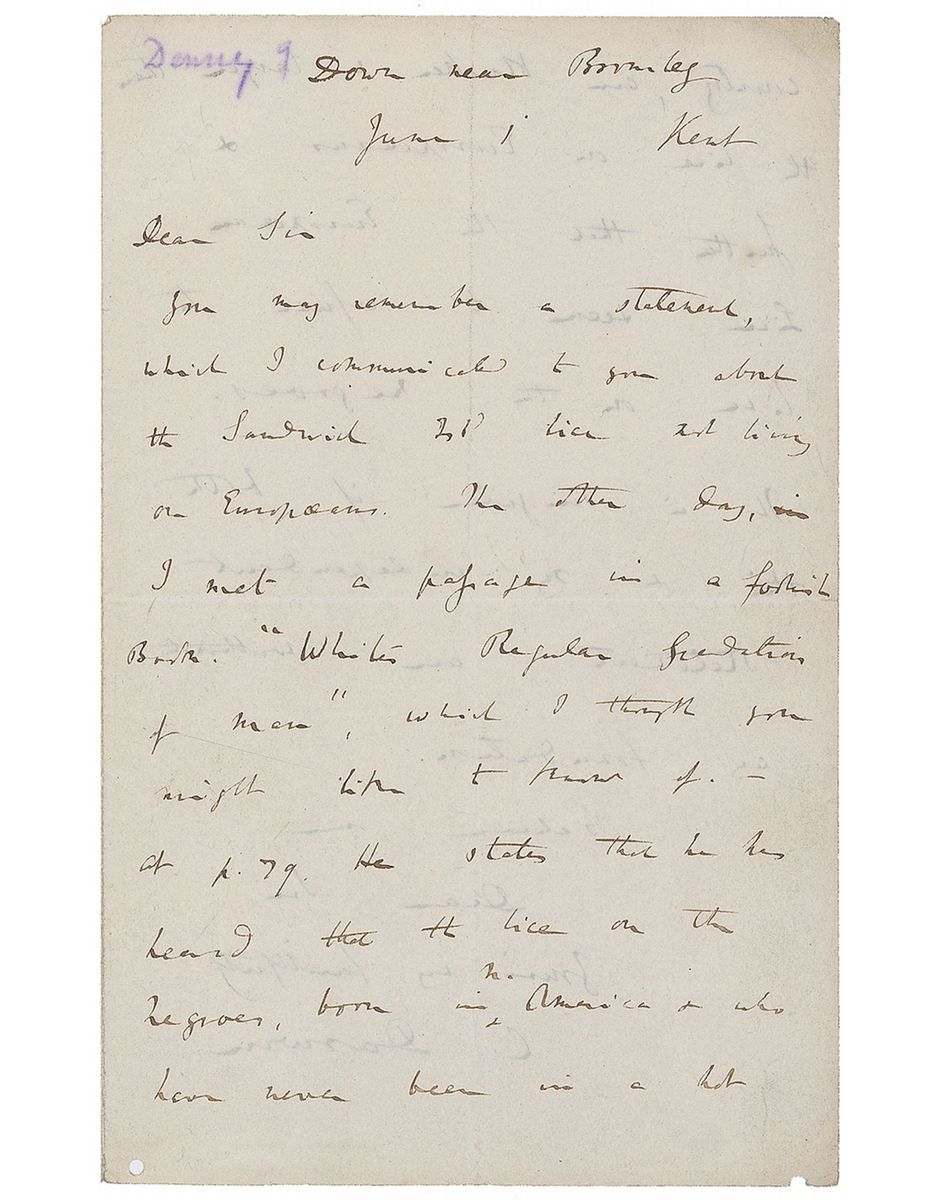 Denny
Down near Bromley
June 1 Kent
Dear Sir
You may remember a statement,
which I communicated to you about
the Sandwich Isd lice not living
on Europæans. The other day, in
I met a passage in a foolish
Book. "White's Regular Gradation
of man", which I thought you
might like to know of. —
at p. 79. He states that he has
heard that the lice on the
negroes, born in N. America & who
have never been in a hot